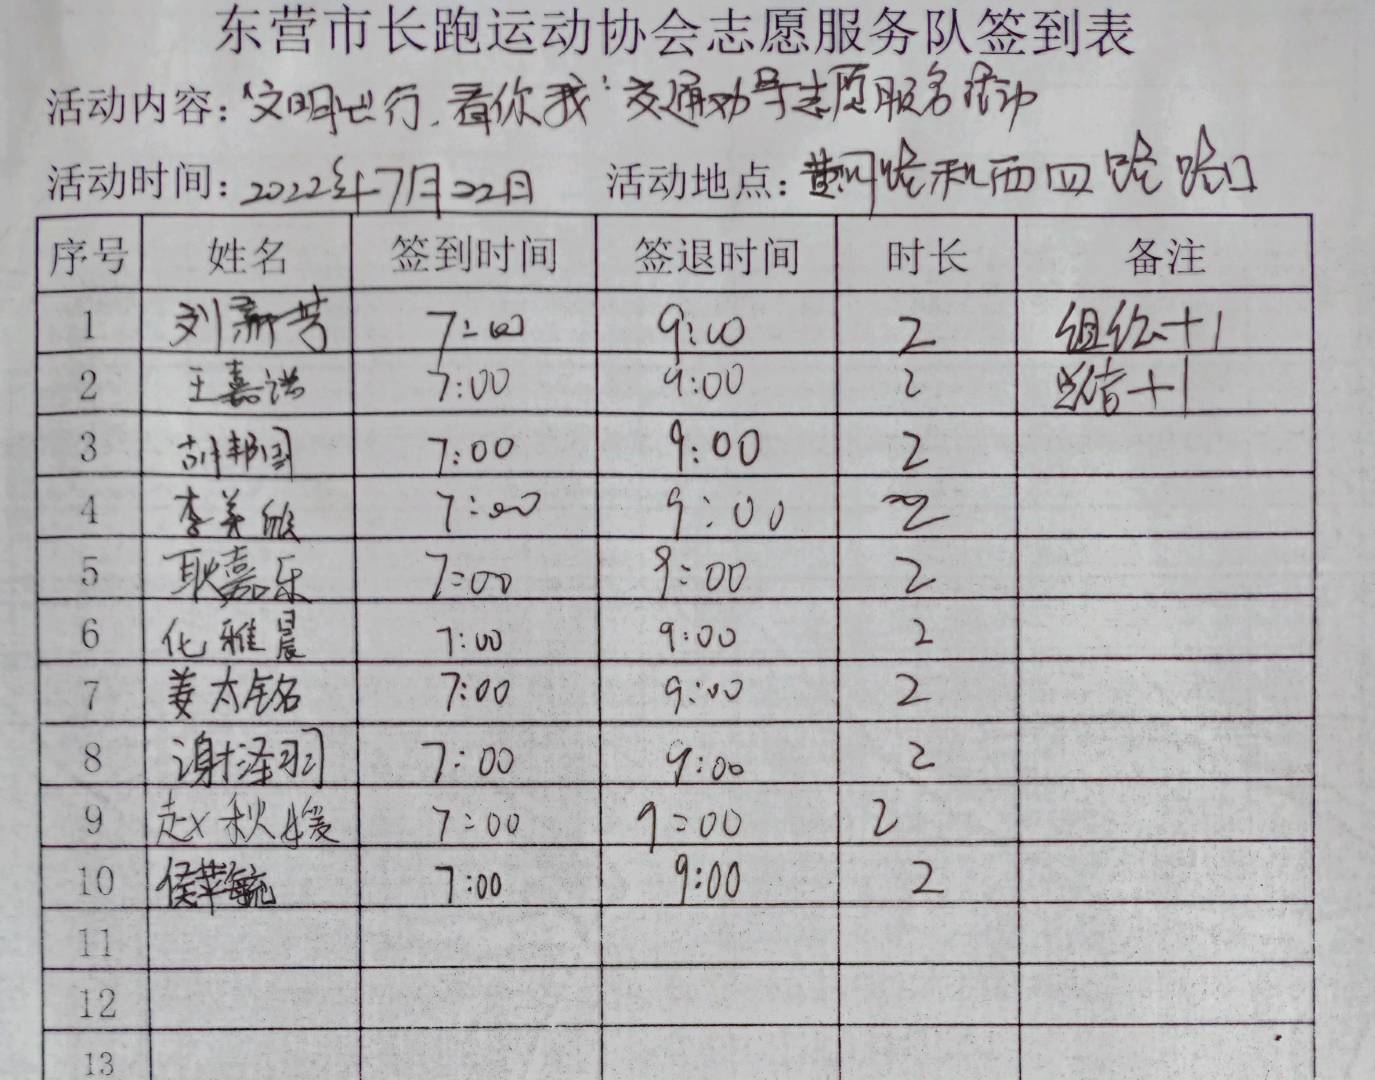 东营市长跑运动协会志愿服务队签到表
活动内容:“文明出行,看你我”交通劝导志愿服务活动
活动时间:2022年7月22日 活动地点:黄河路和西四路路口
序号 姓名 签到时间 签退时间 时长 备注
1 刘新芳 7:00 9:00 2 组织+1
2 王嘉洪 7:00 9:00 2 +1
3 胡邦国 7:00 9:00 2
4 李美欣 7:00 9:00 2
5 耿嘉乐 7:00 9:00 2
6 化雅晨 7:00 9:00 2
7 姜太铭 7:00 9:00 2
8 谢泽羽 7:00 9:00 2
9 赵秋媛 7:00 9:00 2
10 侯苹毓 7:00 9:00 2
11
12
13